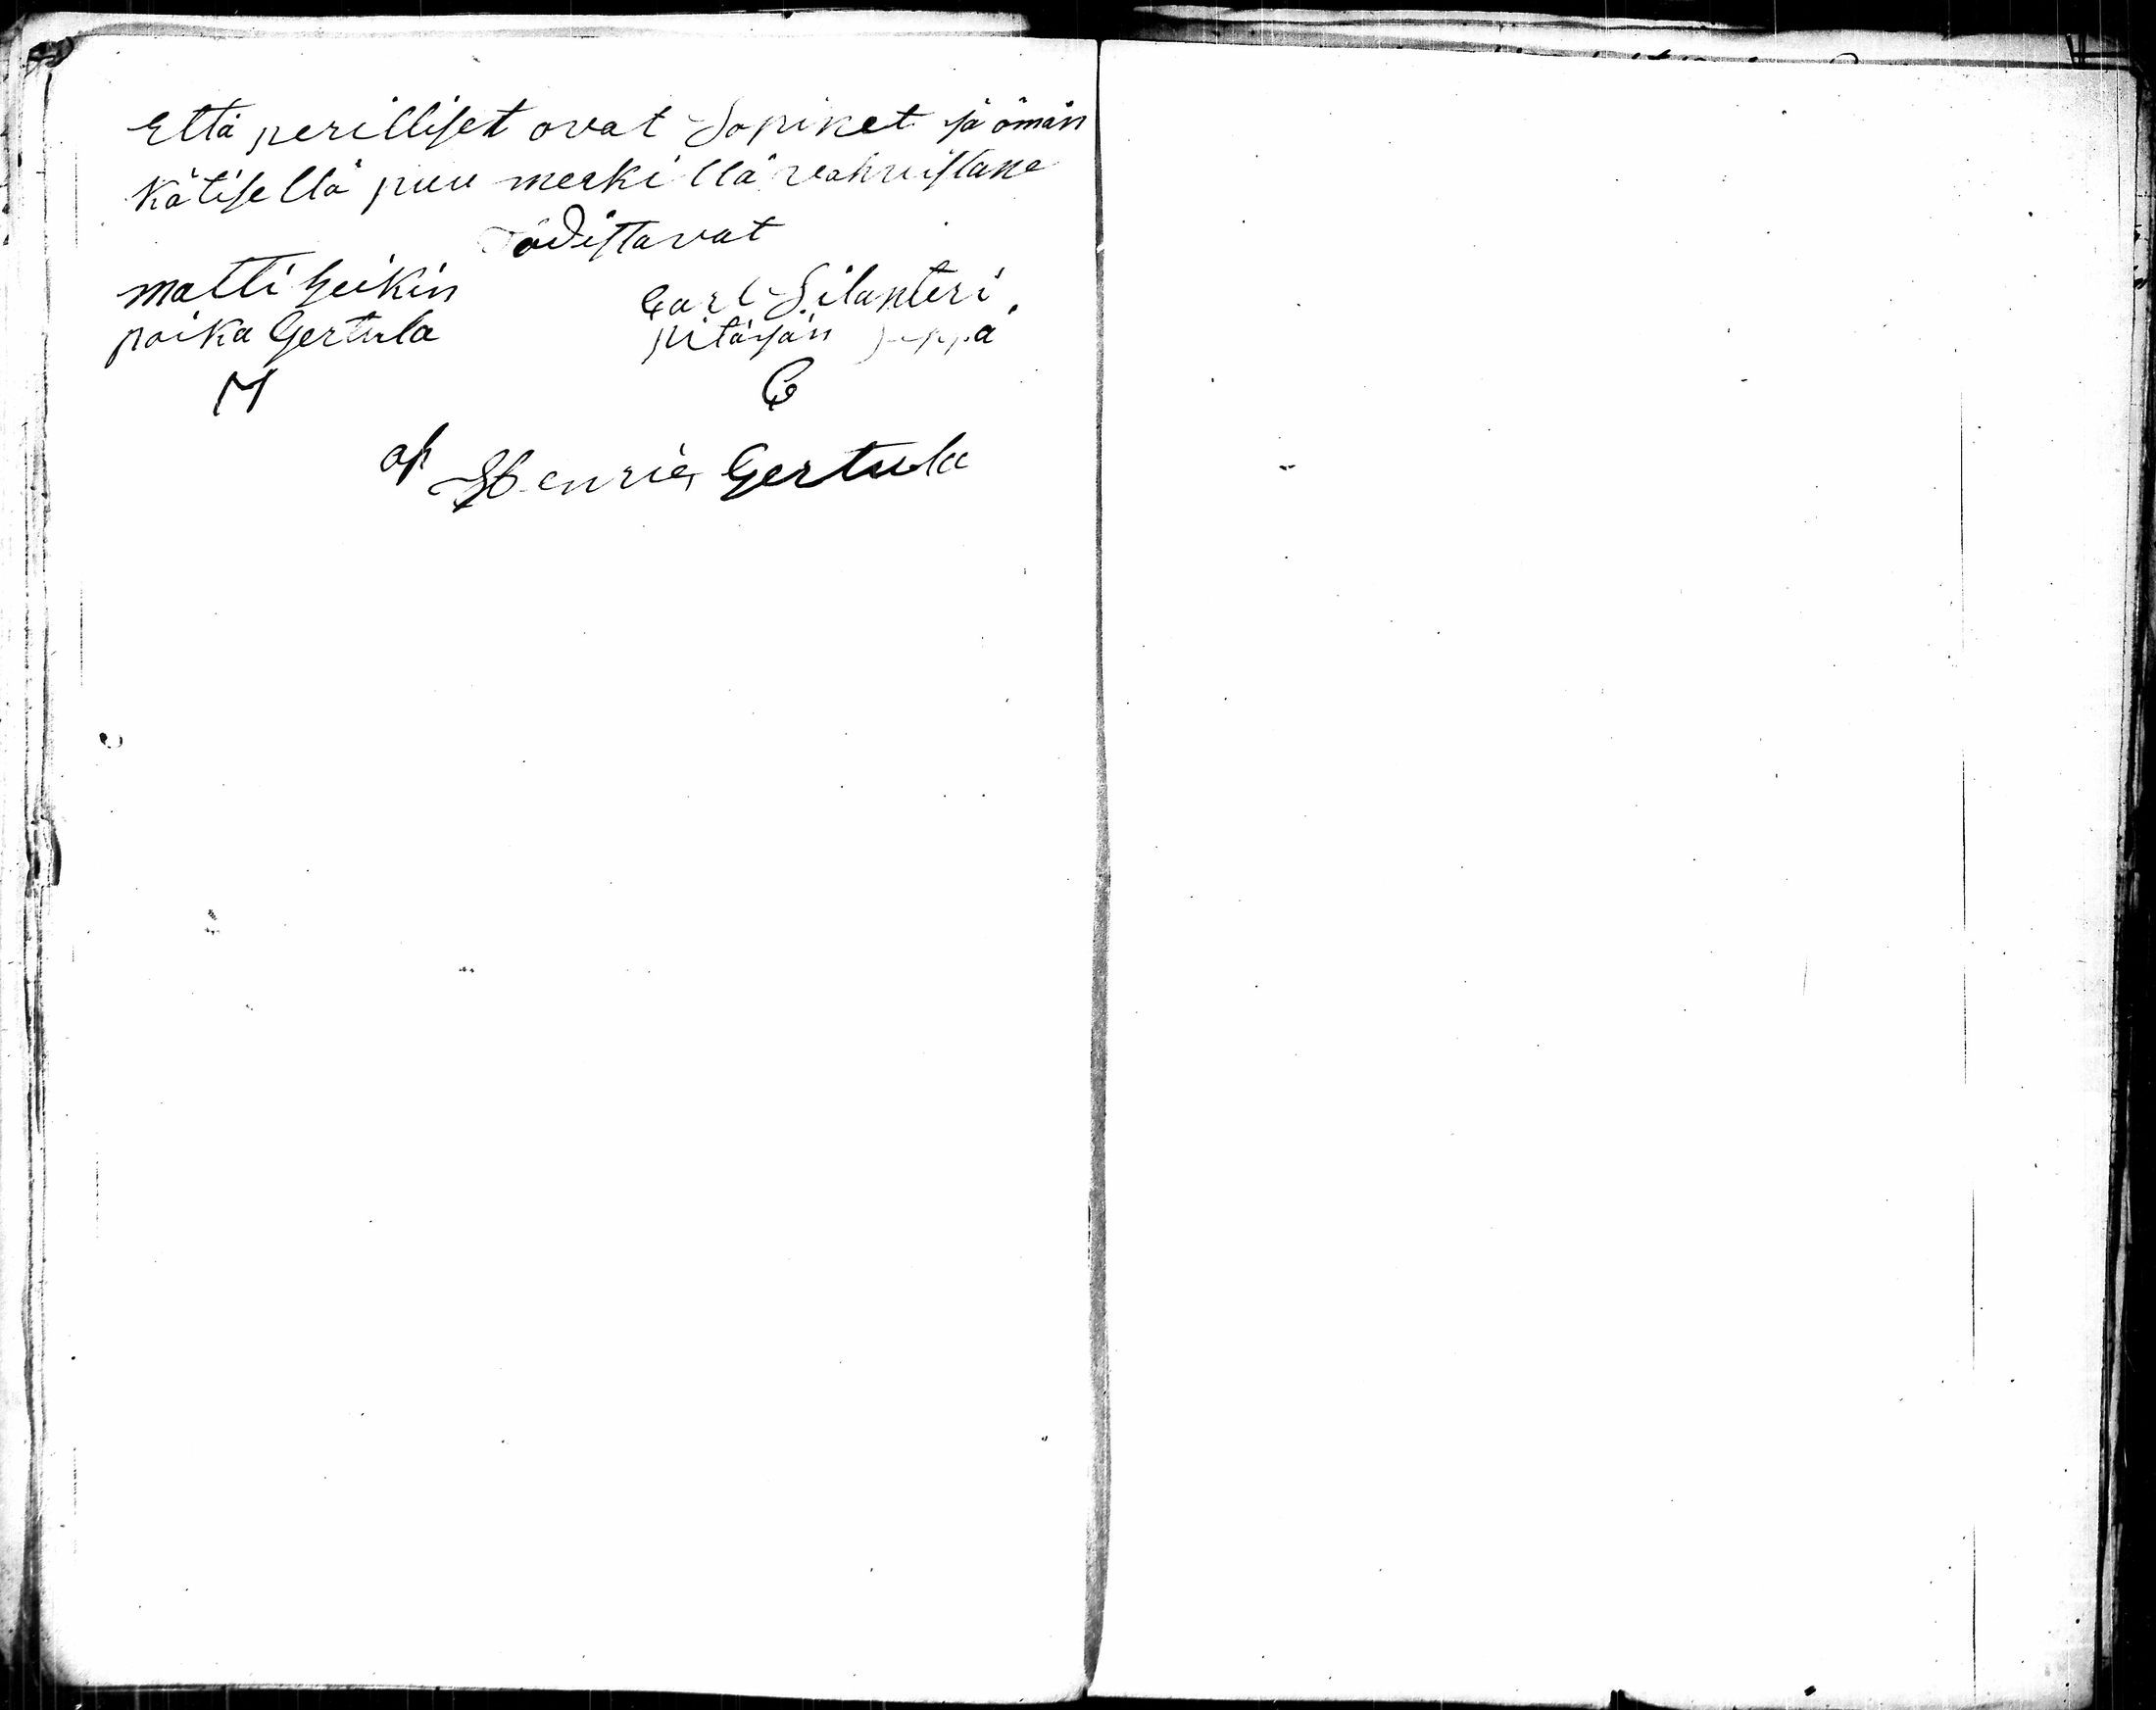 Että perilliset ovat Sopinet ja oman
Kätisellä puu merkillä vahvistane
Todistavat
Matti heikin
poika Gertula
Carl Silanteri
pitäjän seppä
M
C
af Henric Gertula